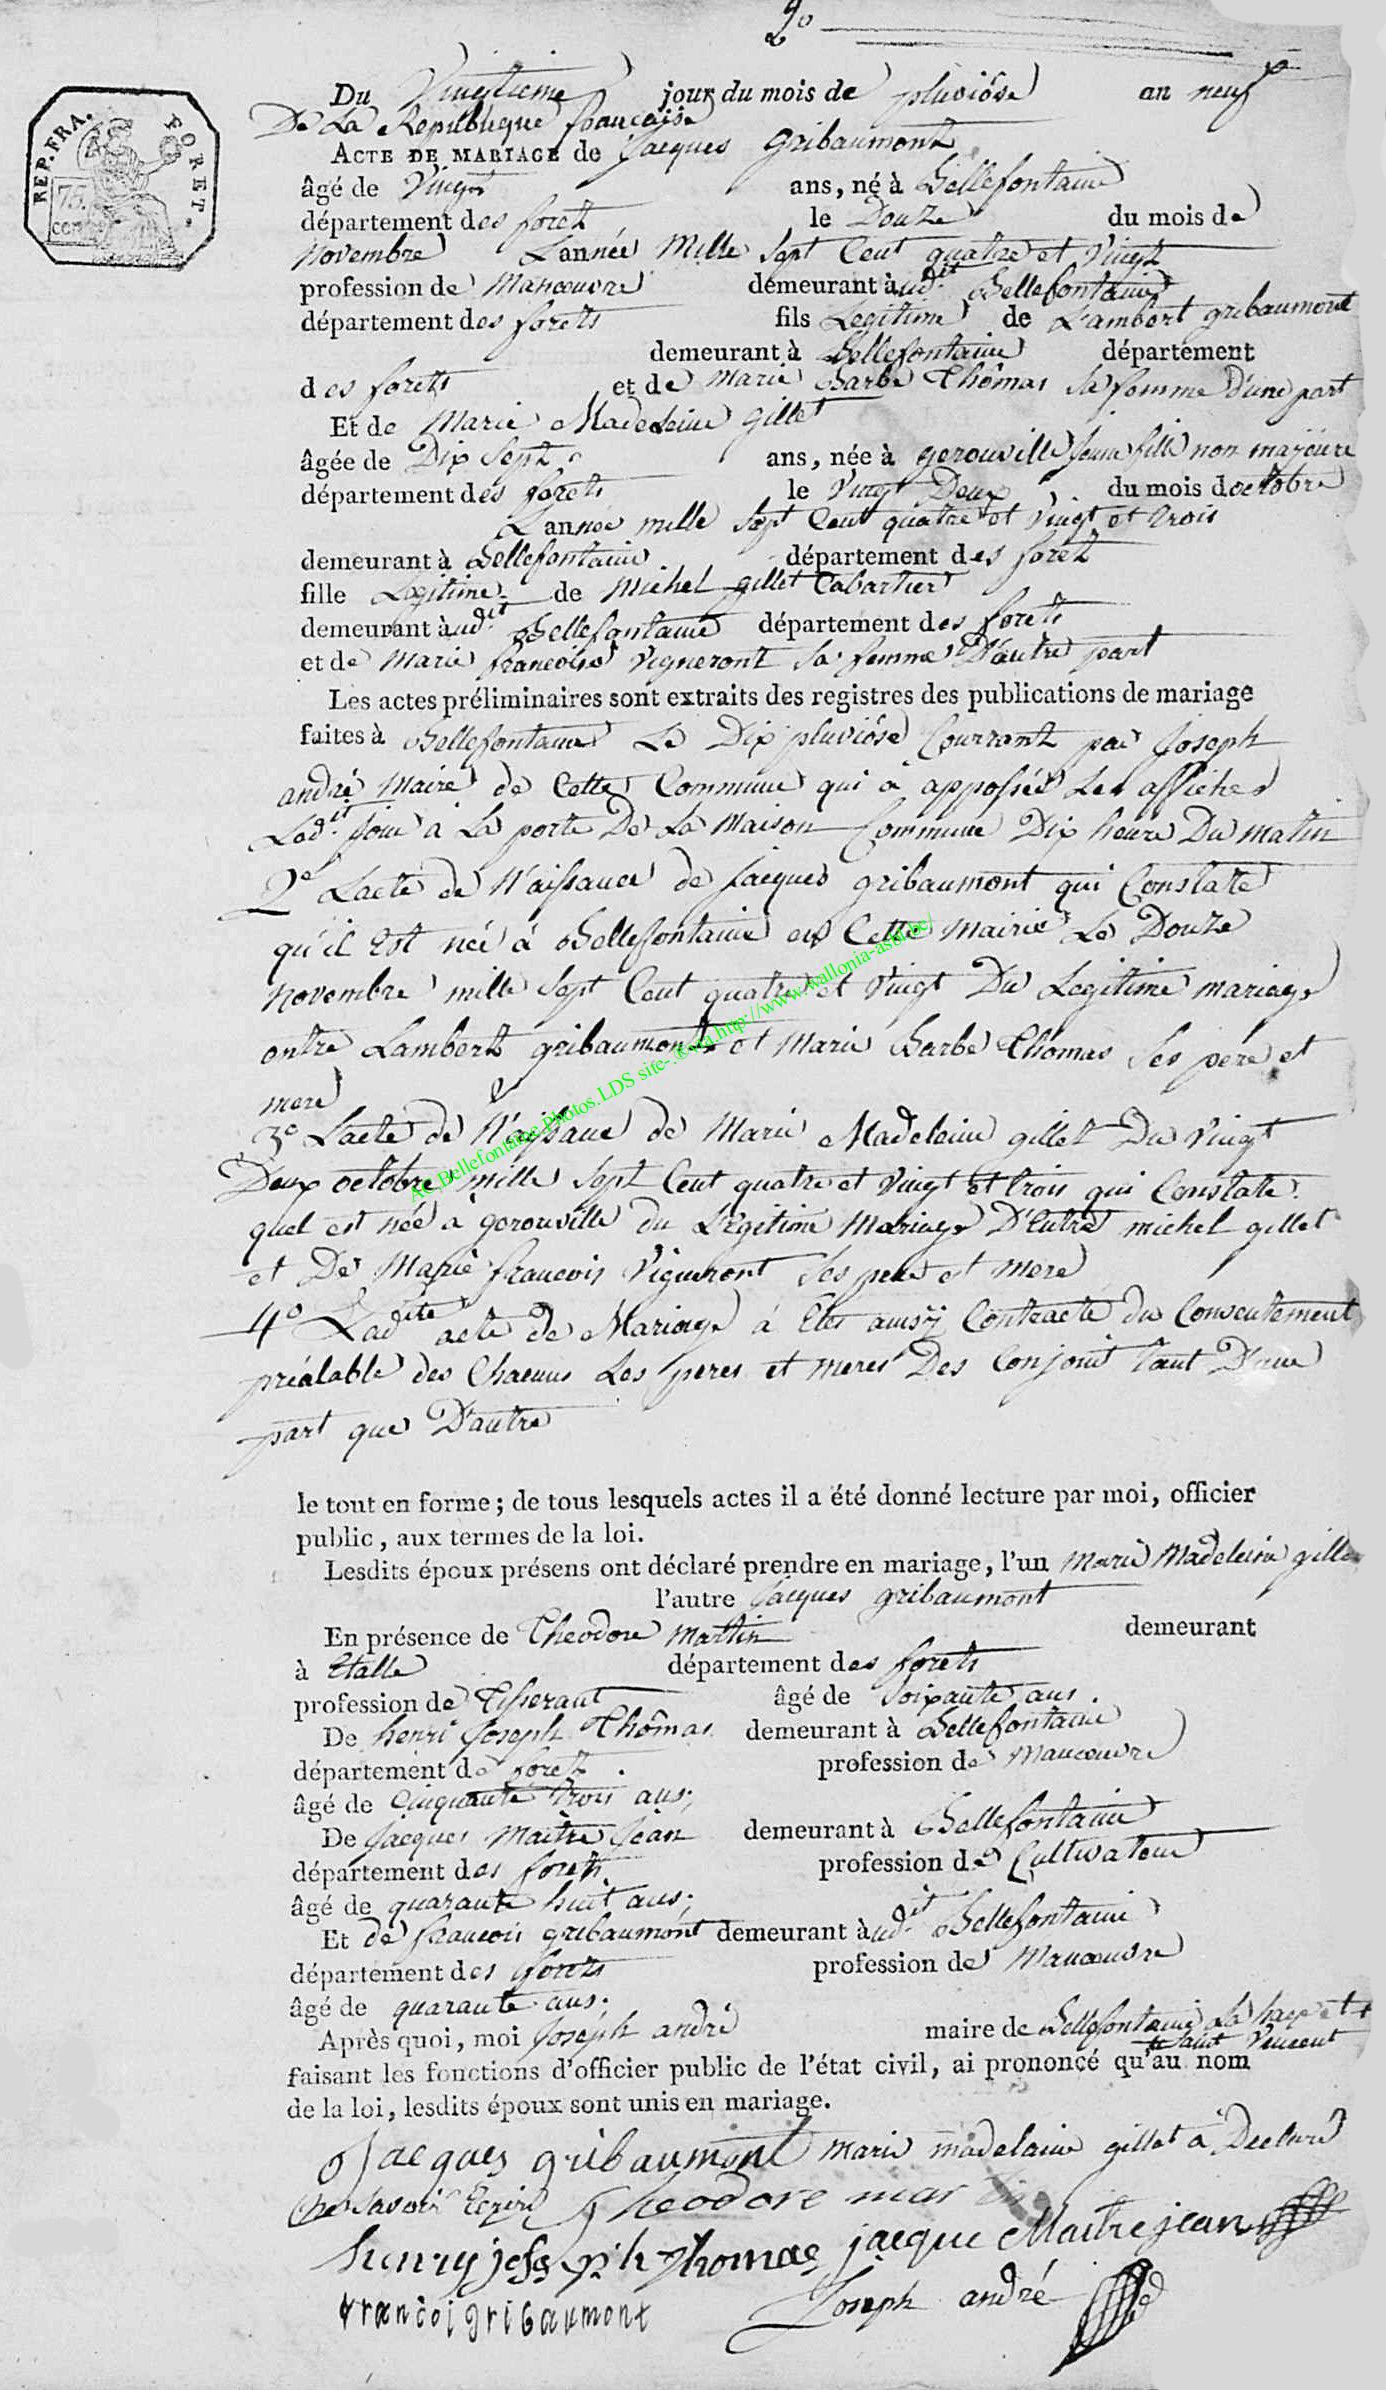 2º
REP.FRA. FORET.
75. cen
Du Vingtieme jour du mois de pluviôse an neuf
De La Republique francaise
ACTE DE MARIAGE de Jacques gribaumont
âgé de Vingt ans, né à Bellefontaine
département des foret le Douze du mois de
Novembre L'année Mille Sept Cent quatre et Vingt
profession de Manœuvre demeurant àud.it Bellefontaine
département des forets fils Legitime de Lambert gribaumont
demeurant à Bellefontaine département
des forets et de Marie Barbe Thômas Sa femme D'une part
Et de Marie Madeleine gillet
âgée de Dix Sept ans, née à gerouville jeune fille non majeure
département des forets le Vingt Deux du mois doctobre
L'année mille Sept Cent quatre et Vingt et trois
demeurant à Bellefontaine département des foret
fille Legitime de Michel gillet Cabartier
demeurant àud.it Bellefontaine département des forets
et de Marie francoise Vigneront Sa femme D'autre part
Les actes préliminaires sont extraits des registres des publications de mariage
faites à Bellefontaine Le Dix pluviôse Courront par Joseph
andré Maire de Cette Commune qui à apposseé Les affiches
Led.it Jour a La porte De La Maison Commune Dix heure Du matin
2º Lacte de Naissance de Jacques gribaumont qui Constate
qu'il Est neé à Bellefontaine en Cette Mairie Le Douze
Novembre mille Sept Cent quatre et Vingt Du Legitime mariage
entre Lambert gribaumont et Marie Barbe Thômas Ses pere et
mere
3º Lacte de Naissance de Marie Madeleine gillet Du Vingt
Deux octobre mille Sept Cent quatre et Vingt et trois qui Constate
quel est neé a gerouville du Legitime Mariage D'Entre michel gillet
et De Marie francois Vigneront Ses pere et mere
4º Ladite acte de Mariage á Etés aussÿ Contracte du Consentement
préalable des Chacuns Les peres et meres Des Conjoint tant D'une
part que D'autre
AC.Bellefontaine.Photos.LDS site-.®via.http://www.wallonia-asbl.be/
le tout en forme; de tous lesquels actes il a été donné lecture par moi, officier
public, aux termes de la loi.
Lesdits époux présens ont déclaré prendre en mariage, l'un Marie Madeleine gillet
l'autre Jacques gribaumont
En présence de Theodore Martin demeurant
à Etalle département des forets
profession de Tisserant âgé de Soixante ans.
De henri Joseph Thômas demeurant à Bellefontaine
département de foret. profession de Manœuvre
âgé de Cinquante trois ans;
De Jacques Maitre Jean demeurant à Bellefontaine
département des forets profession de Cultivateur
âgé de quarante huit ans;
Et de francois gribaumont demeurant àud.it Bellefontaine
département des forets profession de Manœuvre
âgé de quarante ans;
Après quoi, moi Joseph andré maire de Bellefontaine La haye et
Saint Vincent
faisant les fonctions d'officier public de l'état civil, ai prononcé qu'au nom
de la loi, lesdits époux sont unis en mariage.
Jacques gribaumont Marie madelaine gillet à Declaré
Ne Savoir Ecrire Theodore martin
henry joseph Thomas jacque Maitrejean
francoi gribaumont Joseph andré